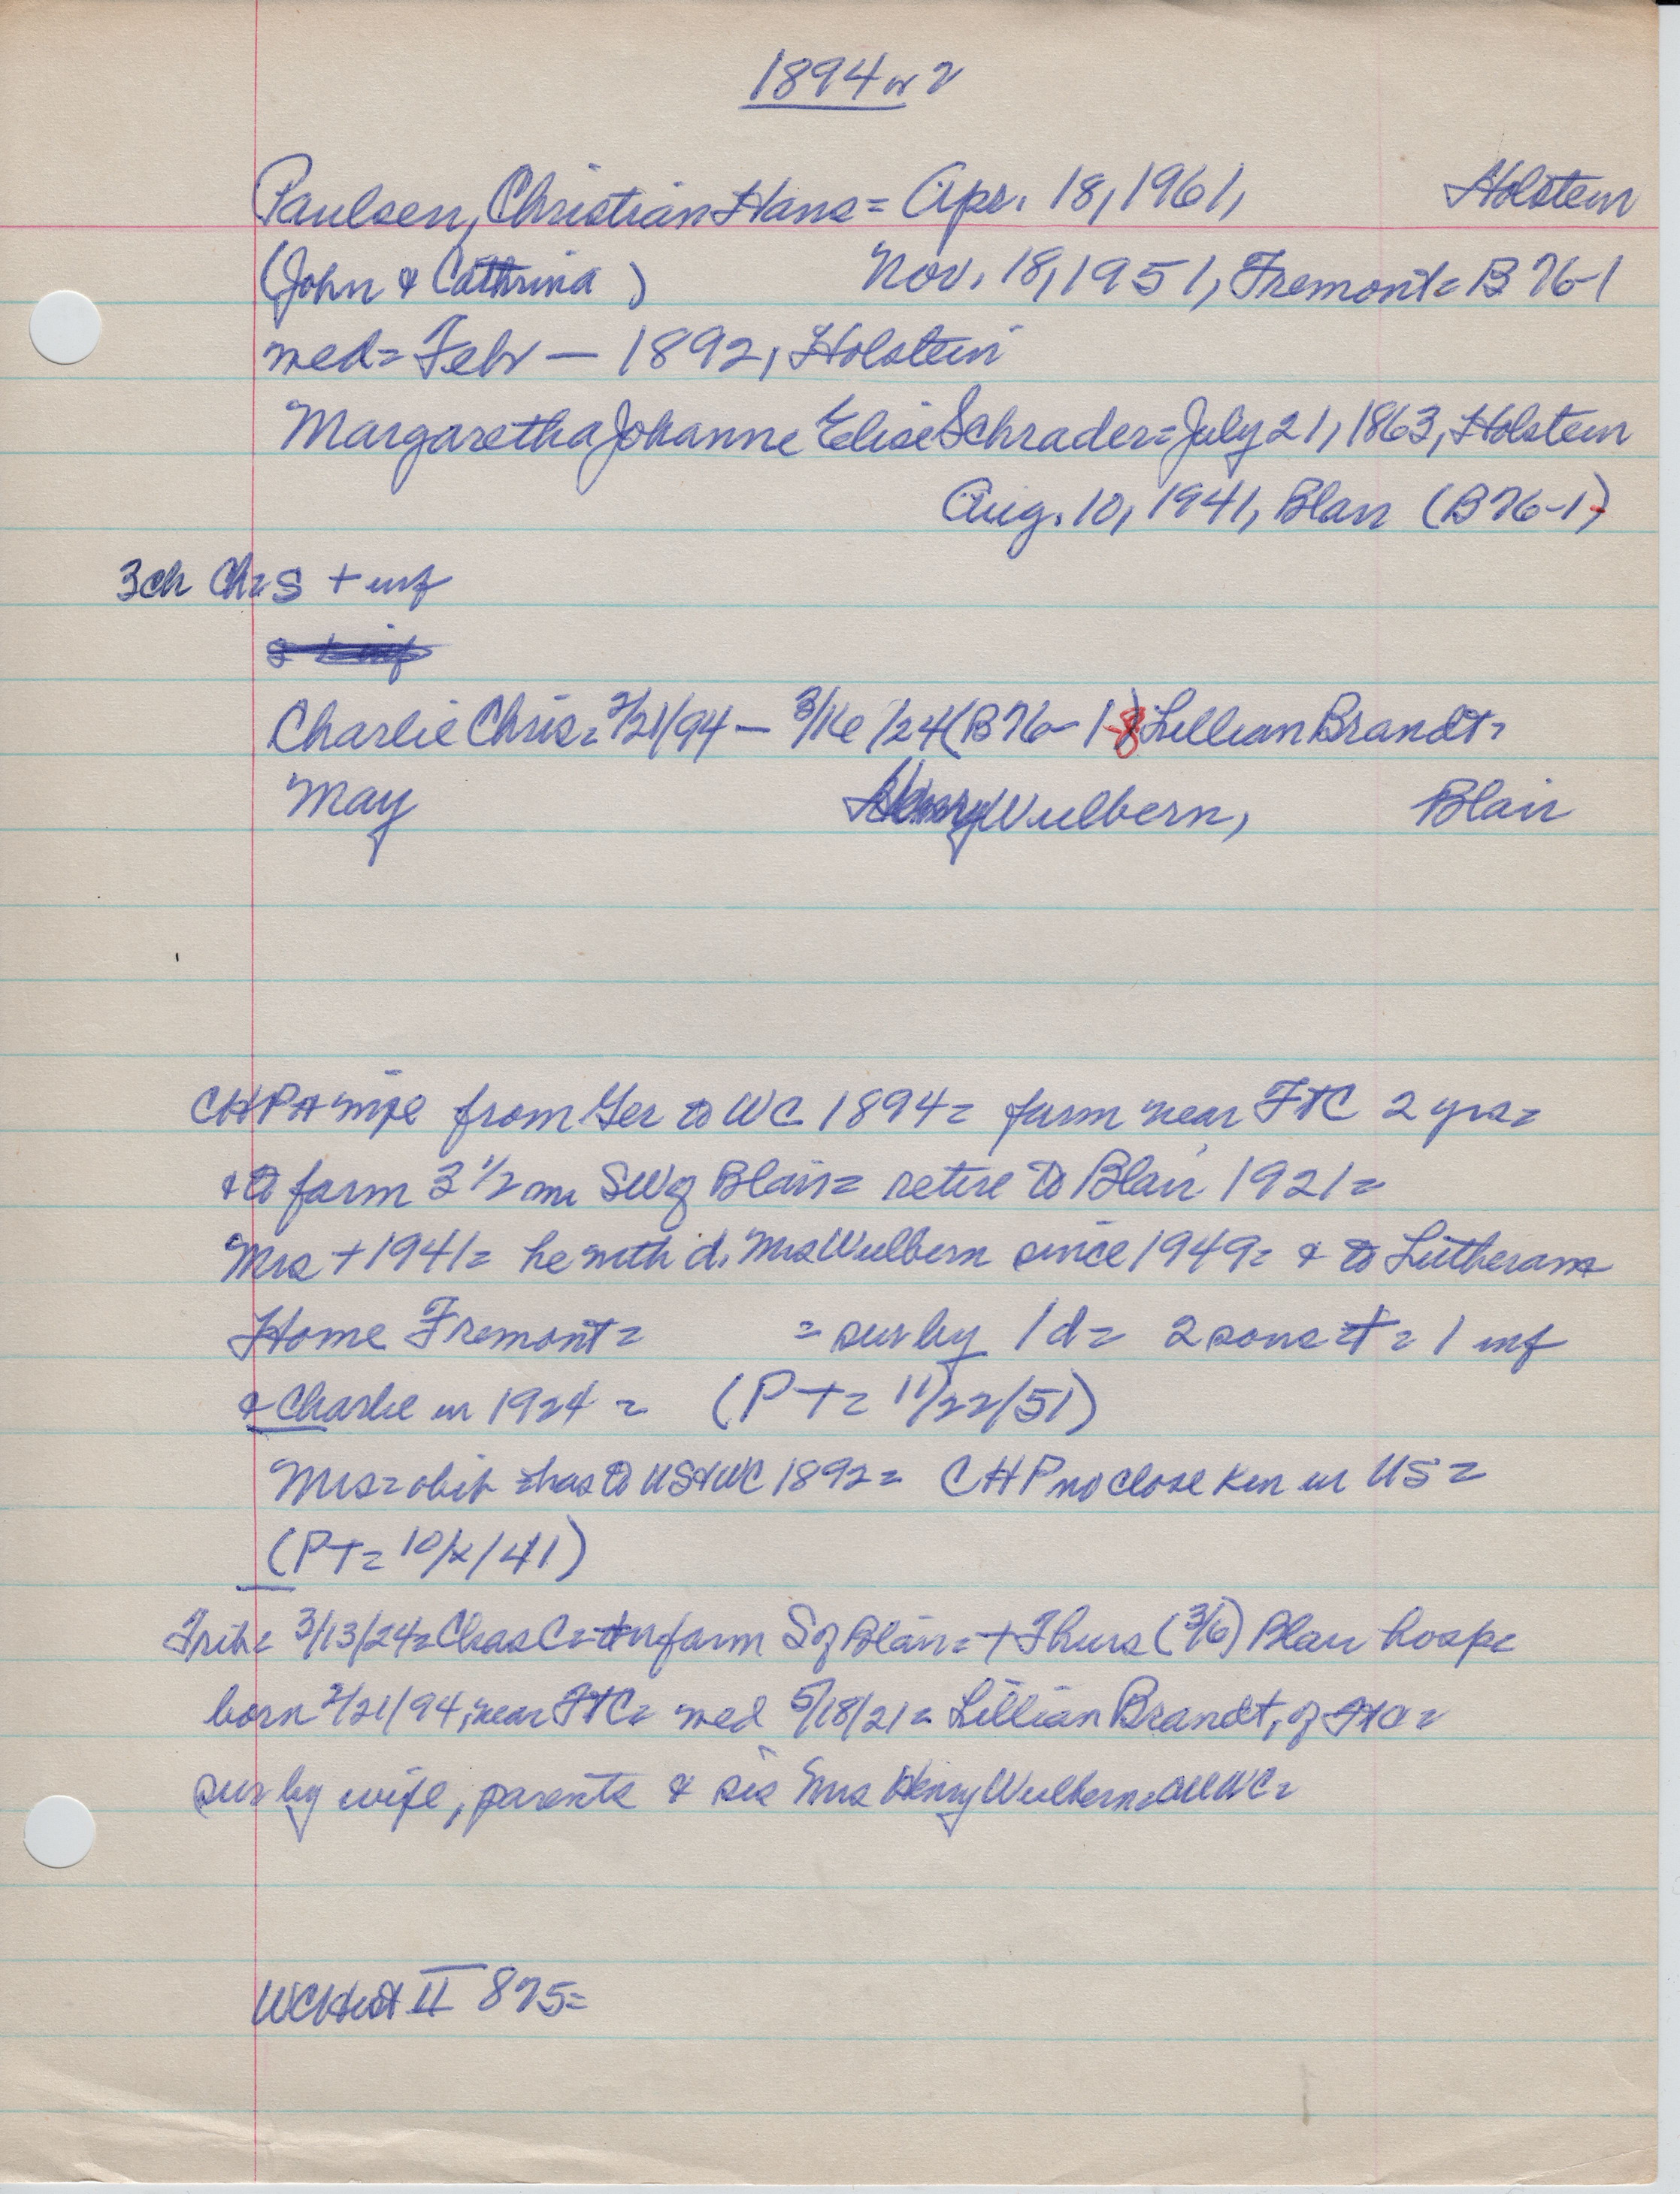 1894 or 2
Paulsen, Christian Hans = Apr. 18, 1961, Holstein
(John & Cathrina ) Nov. 18, 1951, Fremont = B 76-1
med = Febr — 1892, Holstein
Margaretha Johanne Elise Schrader = July 21, 1863, Holstein
Aug. 10, 1941, Blair (B 76-1)
3ch Ch = S + inf
Charlie Chris = 2/21/94 — 3/6/24 (B 76-1-8) Lillian Brandt =
May Henry Wulbern, Blair
CHP & wife from Ger to WC 1894 = farm near FtC 2 yrs =
& to farm 3 1/2 mi SW of Blair = retire to Blair 1921 =
Mrs + 1941 = he with d. Mrs Wulbern since 1949 = & to Lutheran
Home Fremont = = sur by 1 d = 2 sons + = 1 inf
& Charlie in 1924 = (PT = 11/22/51)
Mrs = obit = has to US & WC 1892 = CHP no close kin in US =
(PT = 10/x/41)
Trib = 3/13/24 = Chas C = farm S of Blair = + Thurs (3/6) Blair hosp =
born 2/21/94, near FtC = med 5/18/21 = Lillian Brandt, of FtC =
sur by wife, parents & sis Mrs Henry Wulbern = all WC =
WC Hist II 875 =